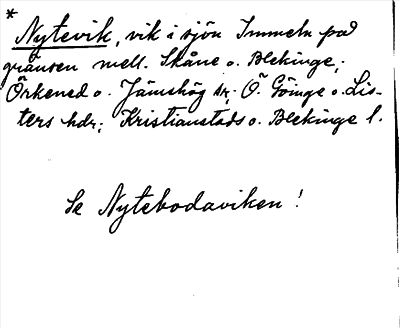 *
Nytevik, vik i sjön Immeln på
gränsen mell. Skåne o. Blekinge;
Örkened o. Jämshög snr; Ö. Göinge o. Lis-
ters hdr; Kristianstads o. Blekinge l.
Se Nytebodaviken!